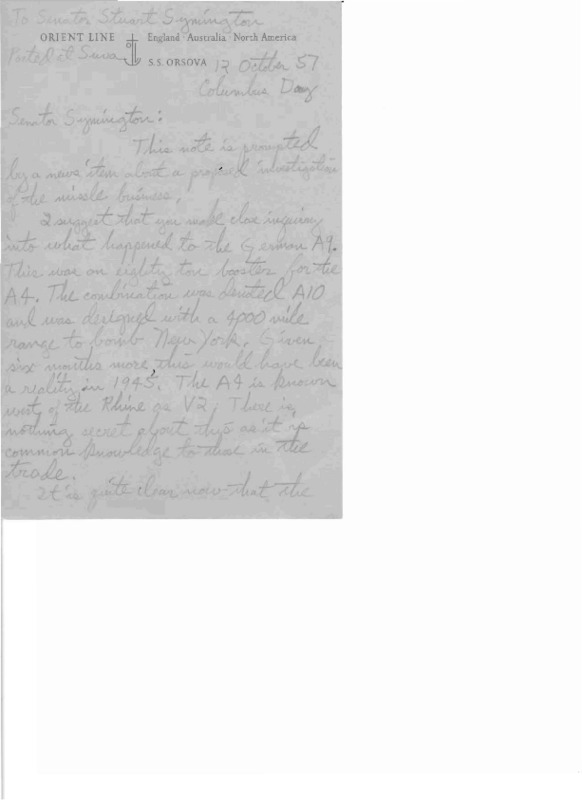 To Senator Stuart Symington
ORIENT LINE England Australia North America
Posted at Suva S.S. ORSOVA 12 October 57
Columbus Day
Senator Symington:
This note is prompted
by a news item about a proposed investigation
of the missle business.
I suggest that you make close inquiry
into what happened to the German A9.
This was an eighty ton booster for the
A4. The combination was denoted A10
and was designed with a 4000 mile
range to bomb New York. Given
six months more, this would have been
a reality in 1945. The A4 is known
west of the Rhine as V2. There is
nothing secret about this as it is
common knowledge to those in the
trade.
It is quite clear now that the